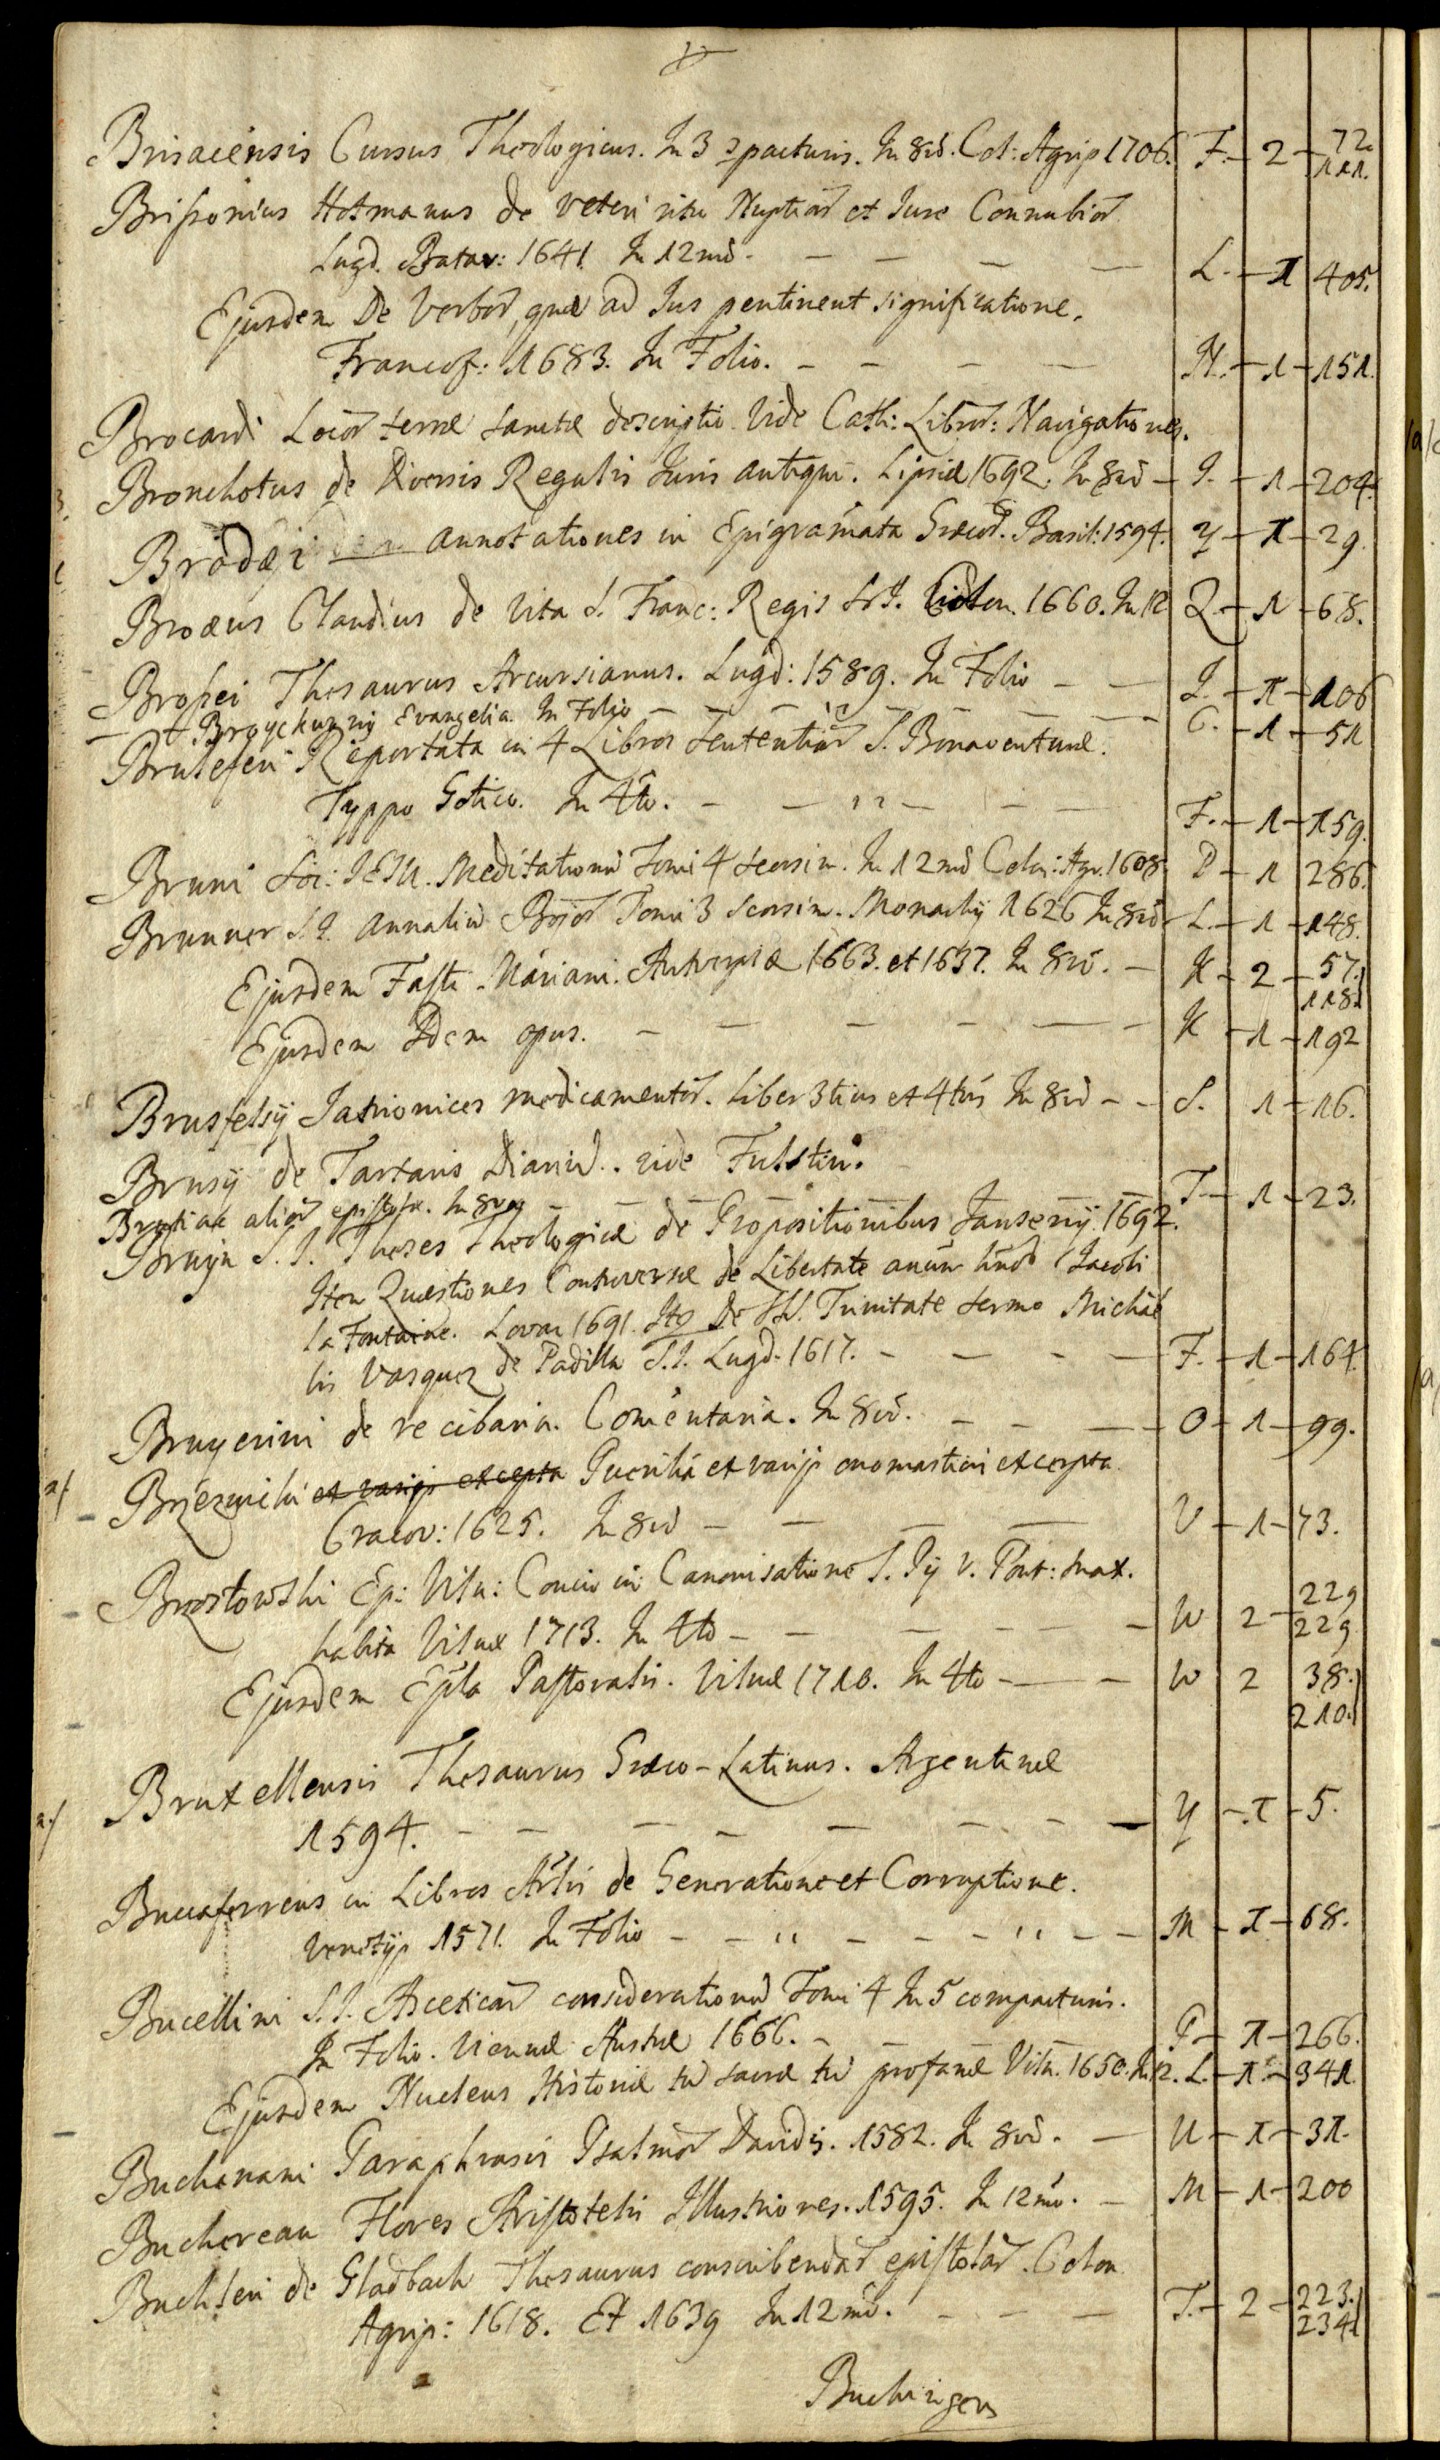 Brisacensis Cursus Theologicus. In 3 cpacturis. In 8vo. Col: Agrip 1706. F. – 2 – 72 111.
Brissonius Hotmanus de veteri ritu Nuptiar et Jure Connubior
Lugd. Batav: 1641 In 12mo. – – – – L. – 1 405.
Ejusdem De Verbor, quæ ad Jus pertinent significatione.
Francof: 1683. In Folio. – – – – H. – 1 – 151.
Brocardi Locor terræ sanctæ descriptio. Vide Cath: Libror: Navigationes.
Bronchotus de Diversis Regulis Juris antiqui. Lipsiæ 1692. In 8vo – I. – 1 – 204.
Brodæi annotationes in Epigramata Græcor. Basil: 1594. Y – 1 – 29.
Broæus Claudius de Vita S. Franc: Regis S.I. 1660. In 12 Q – 1 – 68.
Brossei Thesaurus Arcursianus. Lugd: 1589. In Folio – – I. – 1 – 106
Broyckuznij Evangelia. In Folio – – – – – – C. – 1 – 51
Bruleferi Reportata in 4 Libros Sententiar S. Bonaventuræ.
Typpo Gotico. In 4to. – – " – – – F. – 1 – 159.
Bruni Soc: IESU. Meditationu Tomi 4 seorsim. In 12mo Colon: Agr. 1608. D – 1 286.
Brunner S.I. Annaliu Bojor Tomi 3 Seorsim. Monachij 1626 In 8vo L. – 1 – 148.
Ejusdem Fasti Mariani. Antverpiæ 1663. et 1637. In 8vo. – K – 2 – 57. 118.
Ejusdem Idem opus. – – – – – – K – 1 – 192
Brusfelsij Jatrionices medicamentor. Liber 3tius et 4tus In 8vo – – S. 1 – 16.
Brusij de Tartaris Diariu. vide Fulstin.
Brutiae alior epistolæ. In 8vo – – – – – T – 1 – 23.
Bruyn S.I. Theses Theologicæ de Propositionibus Jansenij. 1692.
Item Quæstiones Controversæ de Libertate Jacobi
la Fontaine. Lovan 1691. Ito De SS. Trinitate Sermo Michae
lis Vasquez de Padilla S.I. Lugd. 1617. – – – – F. – 1 – 164.
Bruyerini de re cibaria. Comentaria. In 8vo. – – – – O – 1 – 99.
a/. Brzeznicki et varijs excepta Puerilia et varijs onomastici excerpta.
Cracov: 1625. In 8vo – – – – V – 1 – 73.
Brzostowski Ep: Viln: Concio in Canonisatione S. Pij V. Pont: Max.
habita Vilnæ 1713. In 4to – – – – – – W 2 – 229 229
Ejusdem Epla Pastoralis. Vilnæ 1710. In 4to – – – W 2 38. 210.
a./ Bruxellensis Thesaurus Græco-Latinus. Argentinæ
1594. – – – – – – – – Y – 1 – 5.
Buccaferreus in Libros Artis de Generatione et Corruptione.
Venetijs 1571. In Folio – – " – – – " – – M – 1 – 68.
Bucellini S.I. Asceticar consideratonu Tomi 4 In 5 compacturis.
In Folio. Viennæ Austriæ 1666. – – – P – 1 – 266.
Ejusdem Nucleus Historiæ tu sacræ tu profanæ Viln. 1650. In 12. L. – 1. – 341.
Buchanani Paraphrasis Psalmor Davidis. 1582. In 8vo. – U – 1 – 31.
Buchereau Flores Aristotelis Illustriores. 1595. In 12mo. – M – 1 – 200
Buchleri de Gladbach Thesaurus conscribendar epistolar. Colon
Agrip: 1618. Et 1639 In 12mo. – – – T. – 2 – 223. 234.
Buchingers